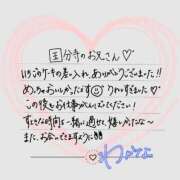 国分寺のお兄さん♡
いちごのケーキの差し入れ、ありがとうございました!!
めっちゃおいしかったす☺うれしすぎました♡
この後もお仕事がんばってください!
すてきな時間を一緒に過せて嬉しかったな〜
また、お会いできますように
わかな♡